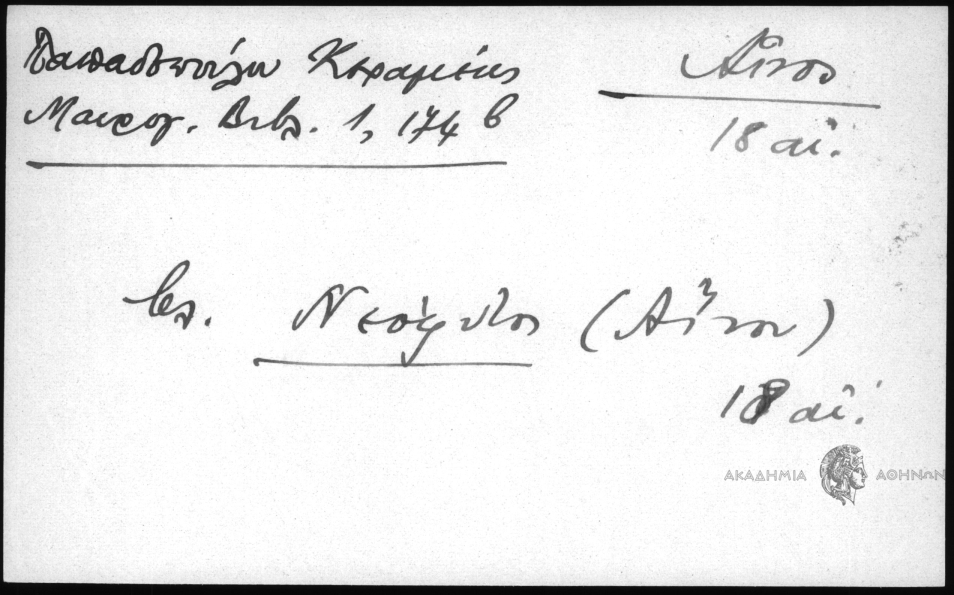 Παπαδοπούλου Κεραμέως
Μαυρογ. Βιβλ. 1, 174 β
Αἶνος
18 αἰ.
βλ. Νεόφυτος (Αἴνου)
18 αἰ.
ΑΚΑΔΗΜΙΑ ΑΘΗΝΩΝ